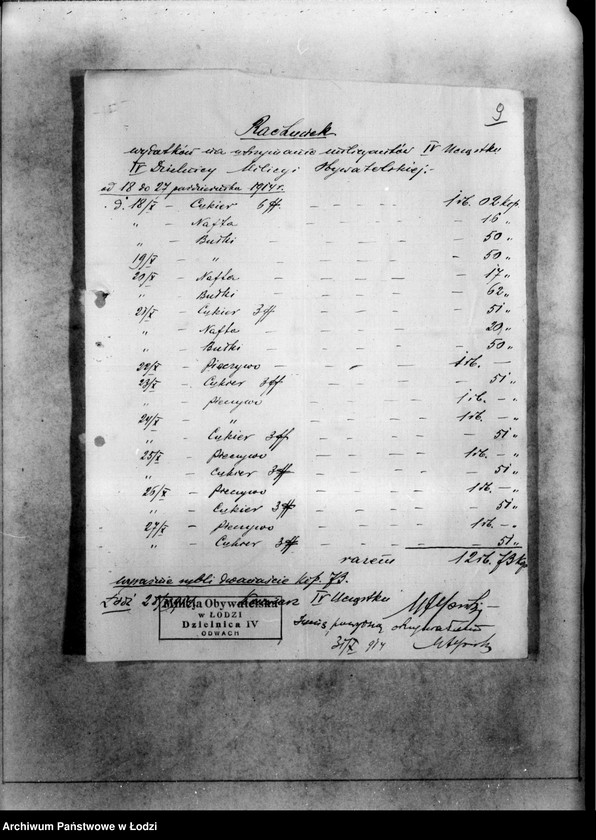 9
Rachunek
wydatków na utrzymanie milicjantów IV Ucząstku
IV Dzielnicy Milicyi Obywatelskiej.-
od 18 do 27 października 1914 r.
d. 18/X - Cukier 6 ff - - - - 1 rb. 02 kop
" - Nafta - - - - - 16 "
" - Bułki - - - - - 50 "
19/X - " - - - - - 50 "
20/X - Nafta - - - - - 17 "
" - Bułki - - - - - 62 "
21/X - Cukier 3 ff - - - - - 51 "
" - Nafta - - - - - 20 "
" - Bułki - - - - - 50 "
22/X - Pieczywo - - - 1 rb. -
23/X - Cukier 3 ff - - - - - 51 "
" - Pieczywo - - - - 1 rb. - "
24/X - " - - - - 1 rb. - "
" Cukier 3 ff - - - - - 51 "
25/X - Pieczywo - - - - 1 rb. - "
" - Cukier 3 ff - - - - - 51 "
26/X - Pieczywo - - - - 1 rb. - "
" - Cukier 3 ff - - - - - 51 "
27/X - Pieczywo - - - - 1 rb. - "
" - Cukier 3 ff - - - - - 51 "
razem 12 rb. 73 kop
wyraźnie rubli dwanaście kop. 73.
Łódź IV Ucząstku
Milicja Obywatelska
w ŁODZI
Dzielnica IV
ODWACH
otrzymałem
31/X 914
Archiwum Państwowe w Łodzi